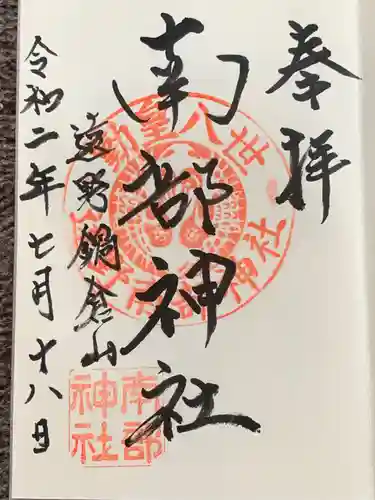 奉拝
南部神社
遠野鍋倉山
令和二年七月十八日
南部
神社